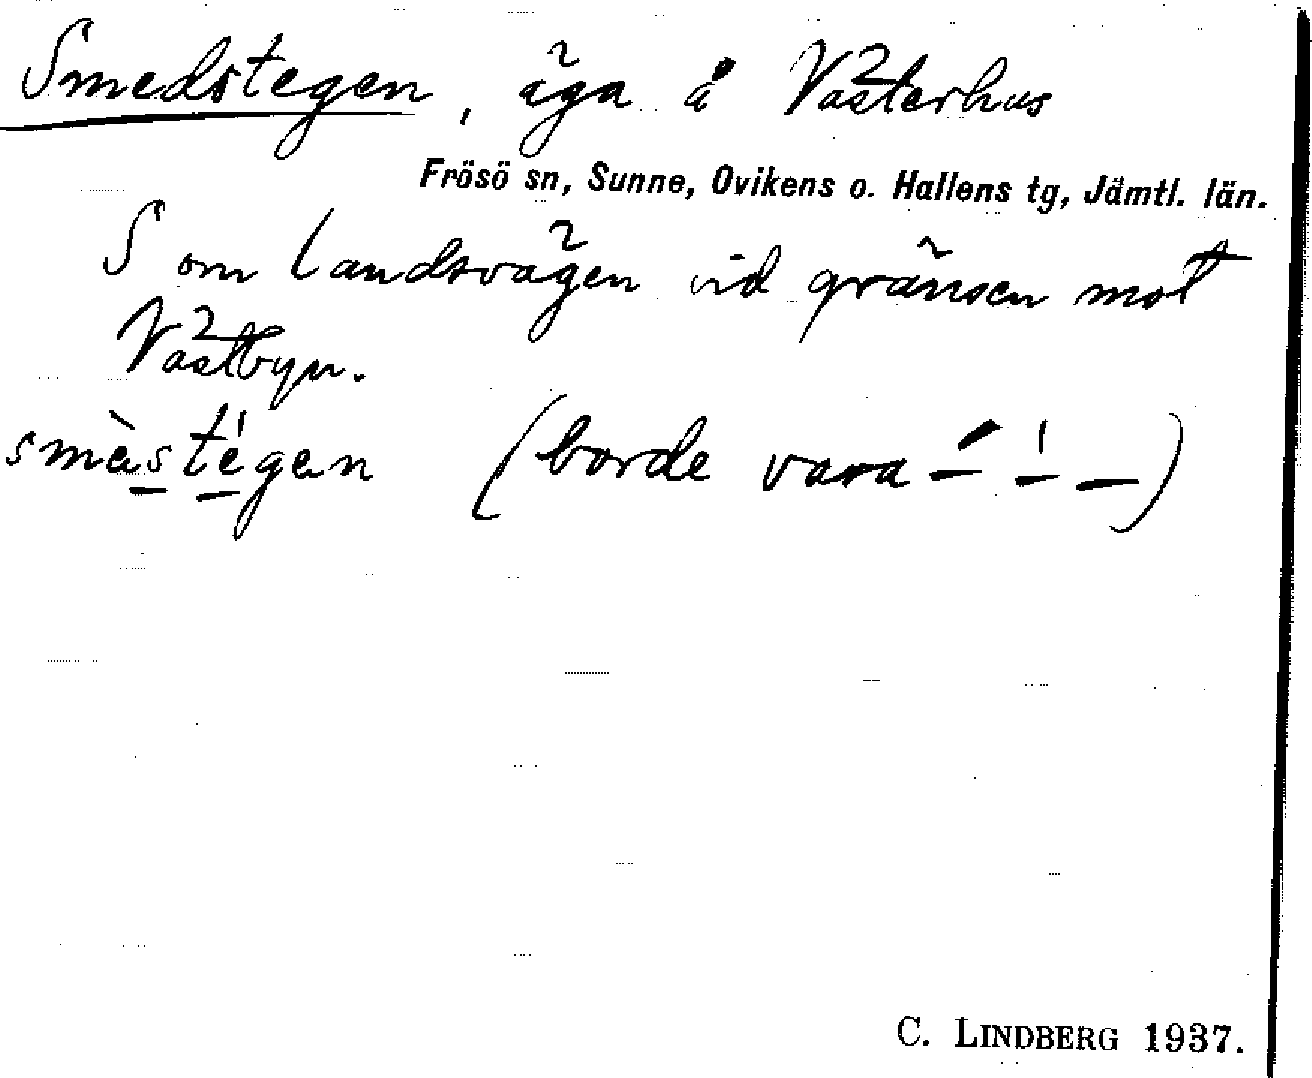 Smedstegen, äga å Västerhus
Frösö sn, Sunne, Ovikens o. Hallens tg, Jämtl. län.
S om landsvägen vid gränsen mot
Västbyn.
smèstégen (borde vara –́ –̍ –)
C. LINDBERG 1937.